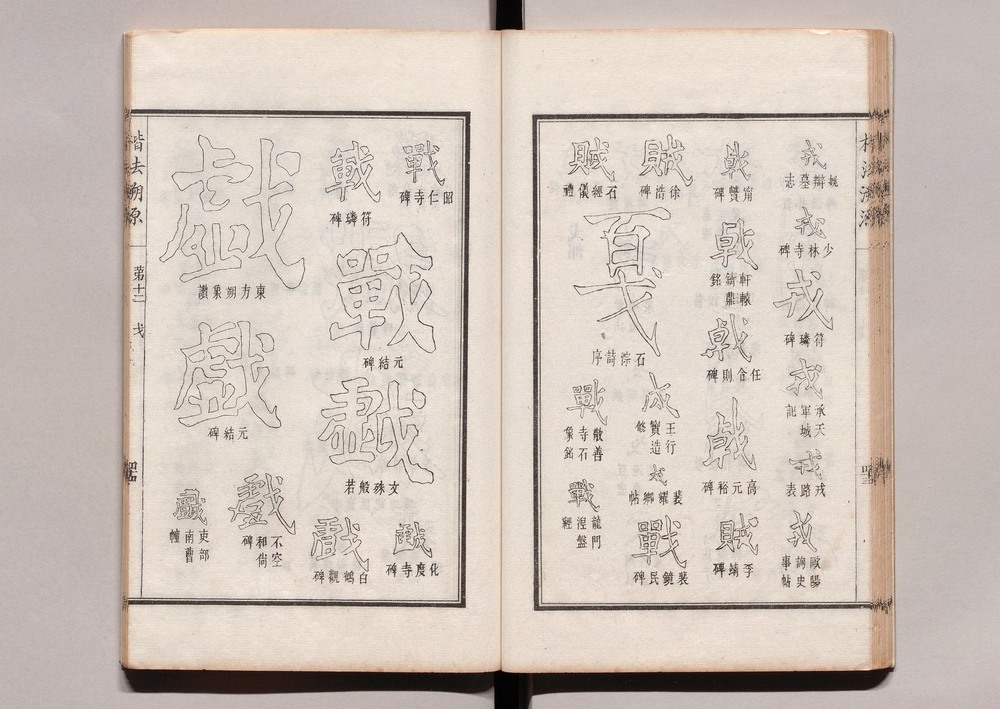 戎
姚辯墓志
戎
少林寺碑
戎
符璘碑
戎
承天軍城記
戎
戎路表
戎
歐陽詢史事帖
戟
甯贙碑
戟
軒轅鑄鼎銘
戟
任令則碑
戟
高元裕碑
賊
李靖碑
賊
徐浩碑
賊
石經儀禮
戛
石淙詩序
王行寶造
裴耀卿帖
戰
裴鏡民碑
戰
敬善寺石象銘
戰
龍門涅盤經
戰
昭仁寺碑
戰
符璘碑
戰
元結碑
戯
文殊般若
戯
化度寺碑
戲
白鶴觀碑
戯
東方朔象讚
戲
元結碑
戲
不空和尚碑
戲
吏部南曹幢
楷法溯源
第十二
戈